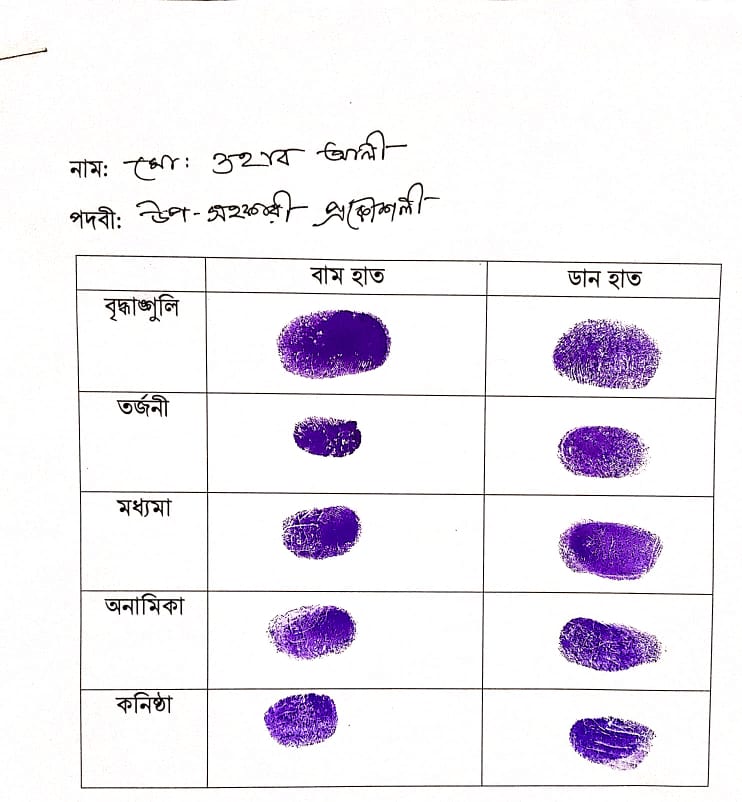 নাম: মো: ওহাব আলী
পদবী: উপ-সহকারী প্রকৌশলী
বাম হাত ডান হাত
বৃদ্ধাঙ্গুলি
তর্জনী
মধ্যমা
অনামিকা
কনিষ্ঠা